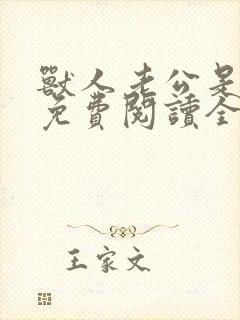 獸人老公是
免費閱讀全
王家文